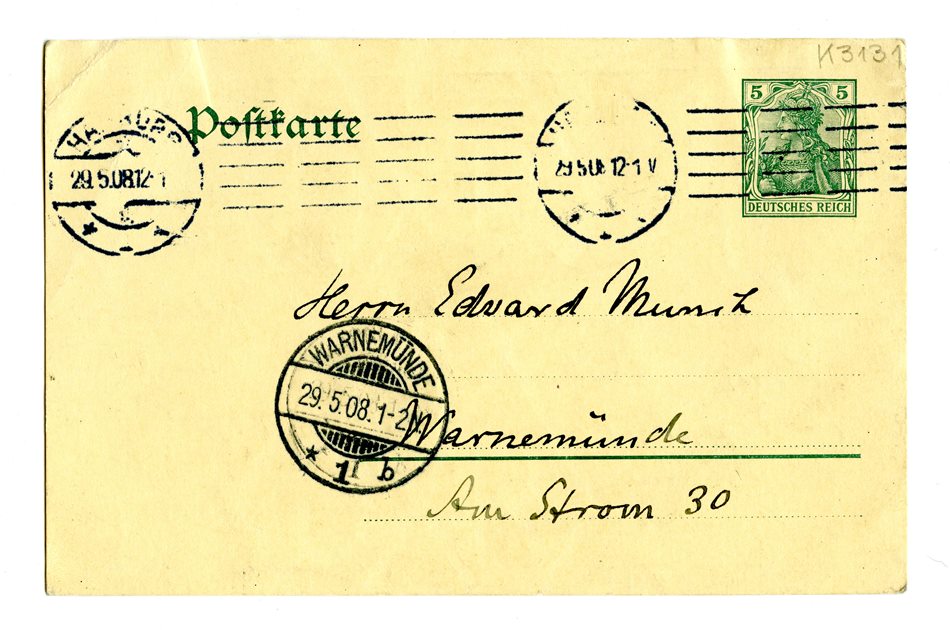 K3131
Postkarte
HAMBURG
29.5.08.12-1
29 5 08 12-1 V
5 5
DEUTSCHES REICH
Herrn Edvard Munch
WARNEMÜNDE
29.5.08.1-2N.
1 b
Warnemünde
Am Strom 30